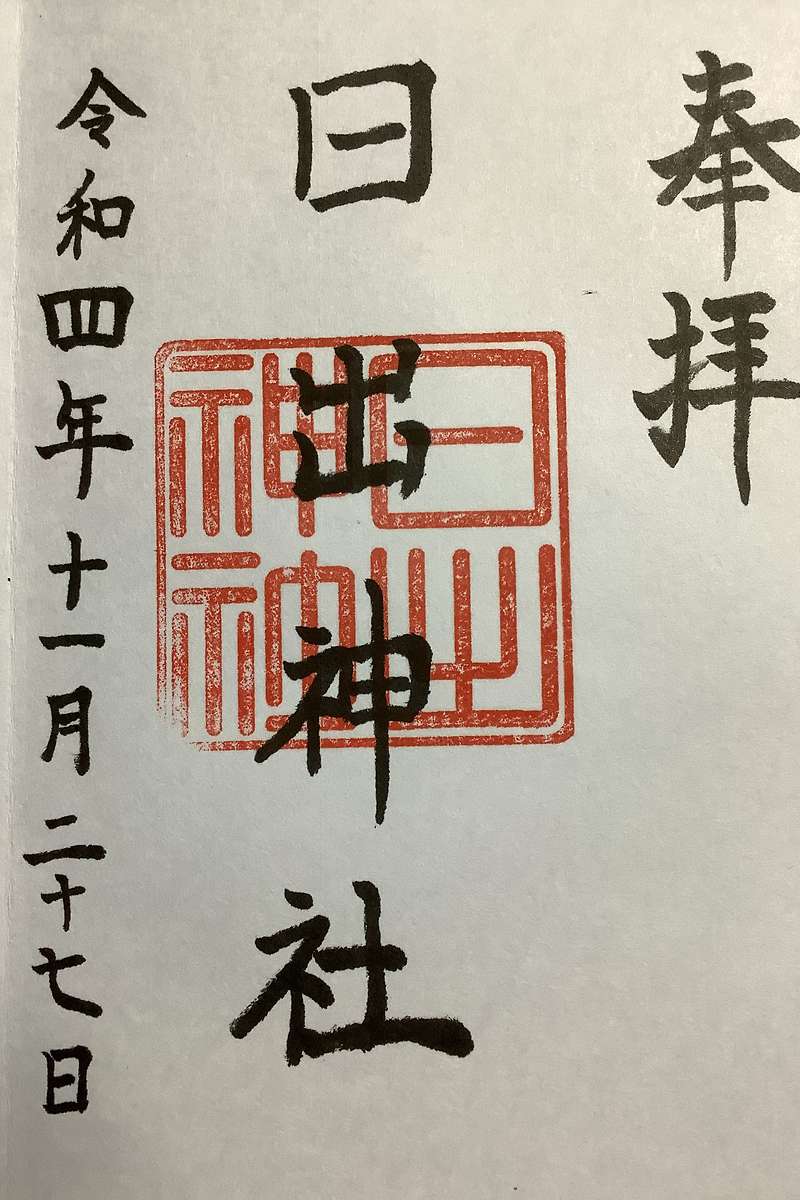 奉拝
日出神社
令和四年十一月二十七日
日出
神